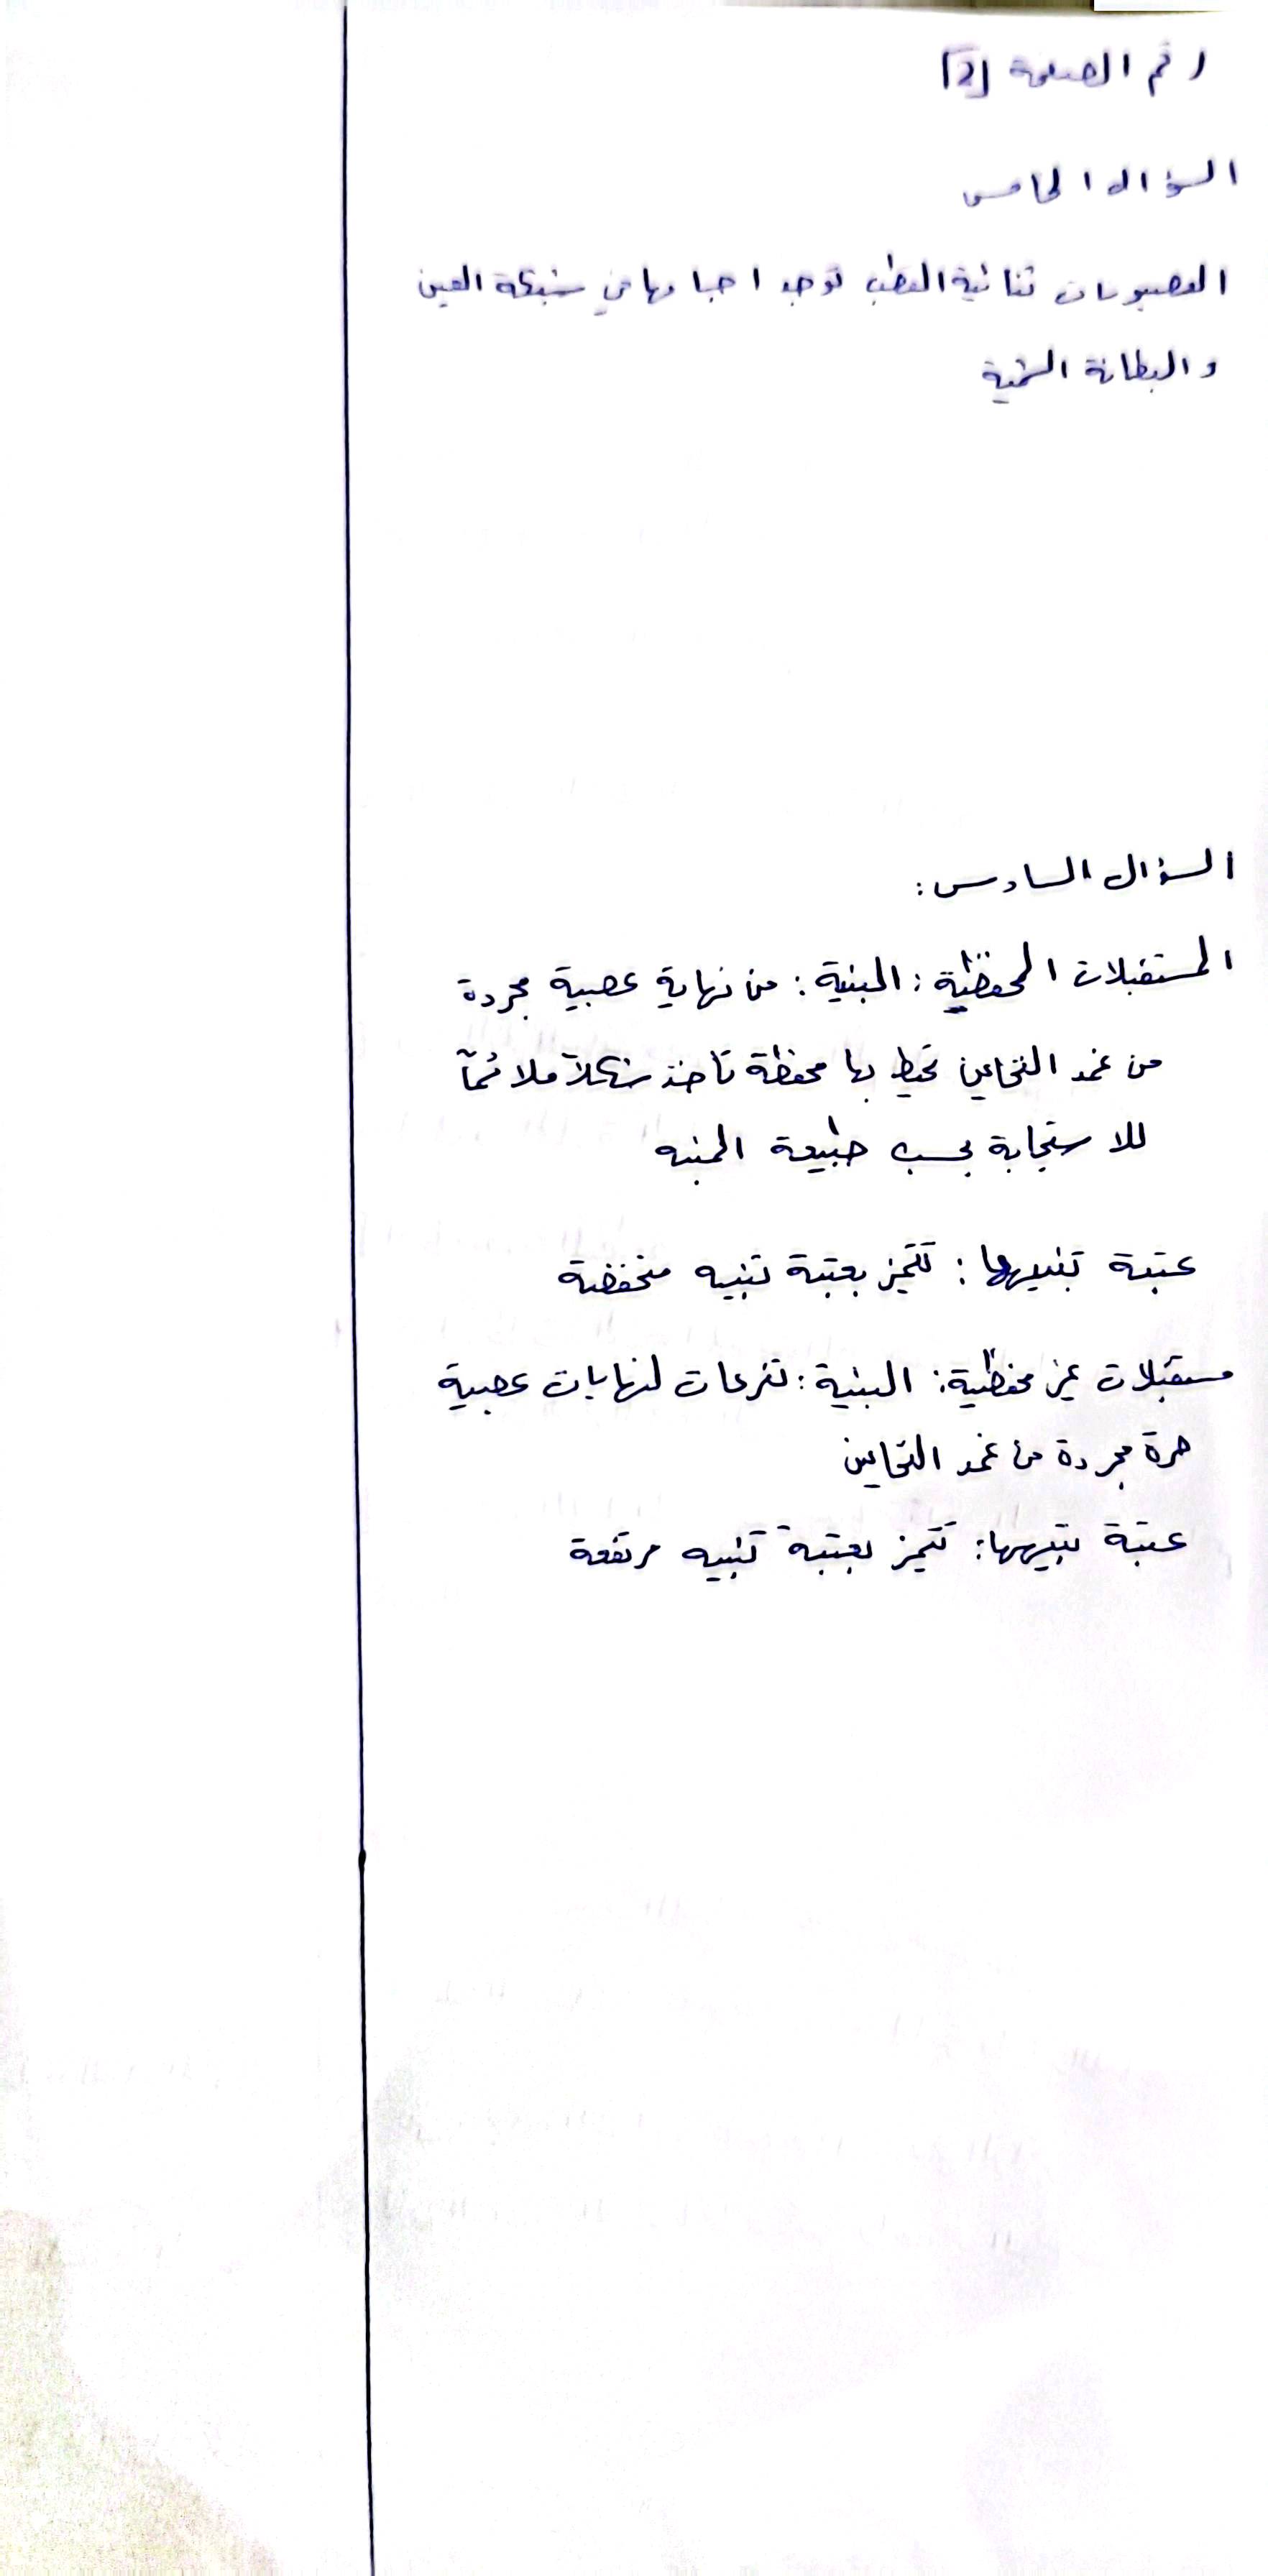 رقم الصفحة [2]
السؤال الخامس
العصبونات ثنائية القطب توجد اجسامها في شبكة العين
والبطانة الشمية
السؤال السادس:
المستقبلات المحفظية: البنية: من نهاية عصبية مجردة
من غمد النخاعين تحيط بها محفظة تأخذ شكلاً ملائماً
للاستجابة بحسب طبيعة المنبه
عتبة تنبيهها: تتميز بعتبة تنبيه منخفضة
مستقبلات غير محفظية: البنية: تفرعات لنهايات عصبية
حرة مجردة من غمد النخاعين
عتبة تنبيهها: تتميز بعتبة تنبيه مرتفعة